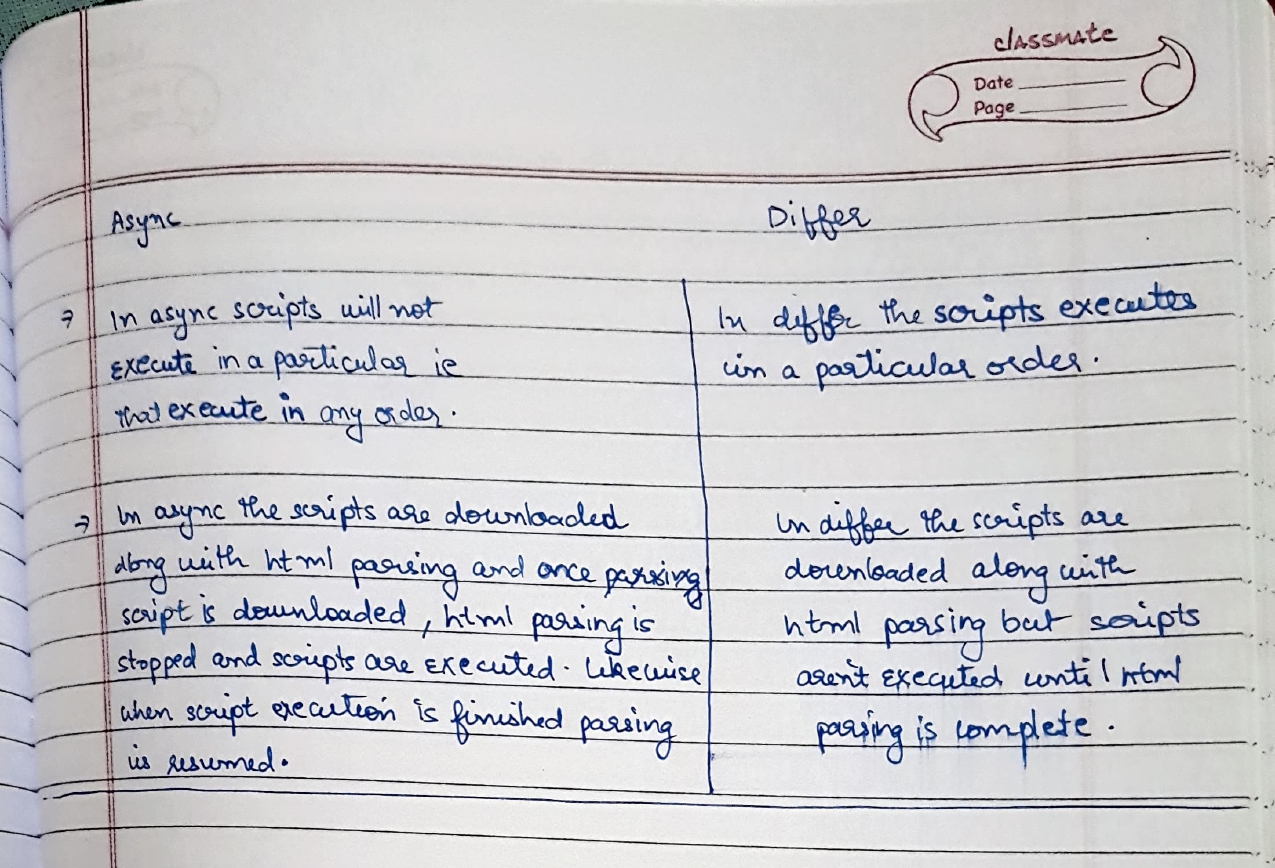 classmate
Date
Page
Async
Differ
→ In async scripts will not
execute in a particular ie
that execute in any order.
In differ the scripts executes
in a particular order.
→ In async the scripts are downloaded
along with html parsing and once parsing
script is downloaded, html parsing is
stopped and scripts are executed. Likewise
when script execution is finished parsing
is resumed.
In differ the scripts are
downloaded along with
html parsing but scripts
aren't executed until html
parsing is complete.